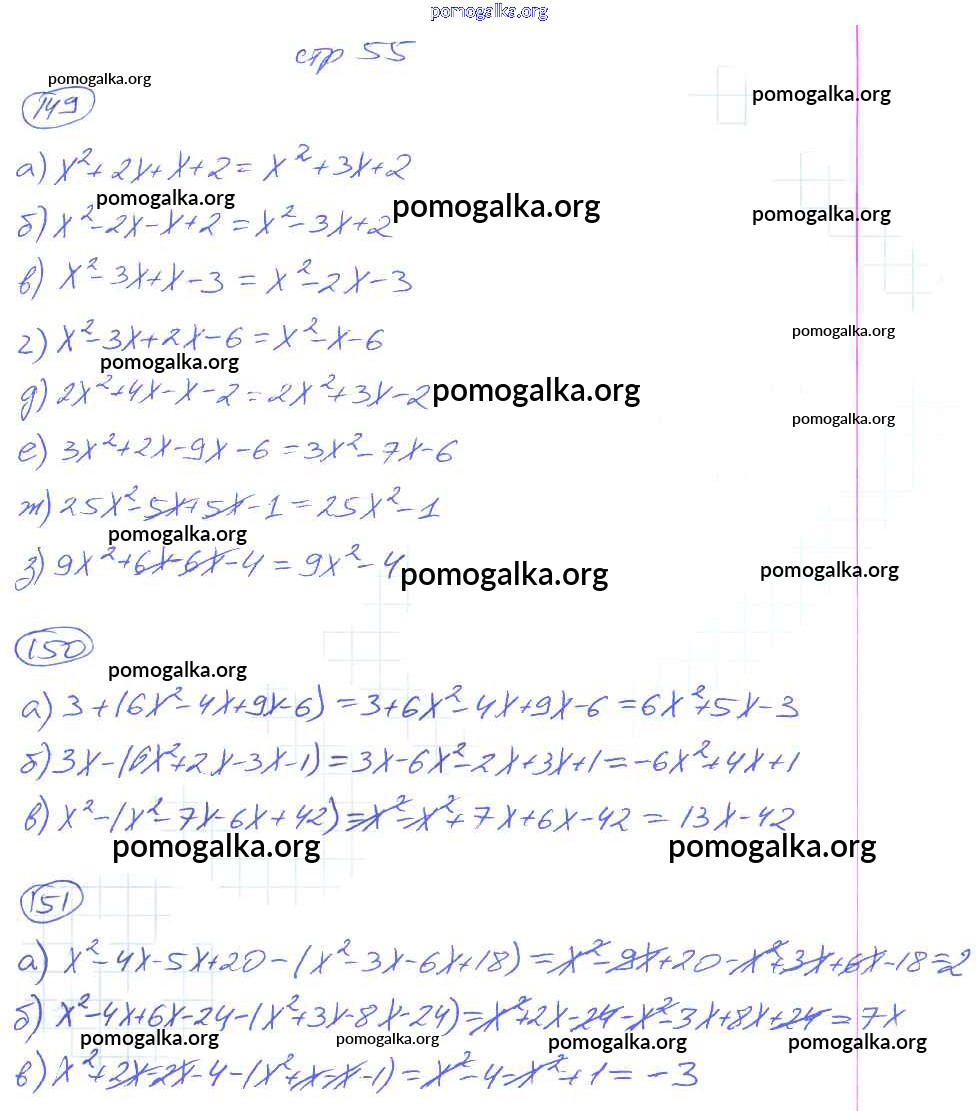 pomogalka.org
стр 55
pomogalka.org
pomogalka.org
149
а) x²+2x+x+2=x²+3x+2
pomogalka.org
pomogalka.org
pomogalka.org
б) x²-2x-x+2=x²-3x+2
в) x²-3x+x-3=x²-2x-3
pomogalka.org
г) x²-3x+2x-6=x²-x-6
pomogalka.org
pomogalka.org
д) 2x²+4x-x-2=2x²+3x-2
pomogalka.org
е) 3x²+2x-9x-6=3x²-7x-6
ж) 25x²-5x+5x-1=25x²-1
pomogalka.org
з) 9x²+6x-6x-4=9x²-4
pomogalka.org
pomogalka.org
150
pomogalka.org
а) 3+(6x²-4x+9x-6)=3+6x²-4x+9x-6=6x²+5x-3
б) 3x-(6x²+2x-3x-1)=3x-6x²-2x+3x+1=-6x²+4x+1
в) x²-(x²-7x-6x+42)=x²-x²+7x+6x-42=13x-42
pomogalka.org
pomogalka.org
151
а) x²-4x-5x+20-(x²-3x-6x+18)=x²-9x+20-x²+3x+6x-18=2
б) x²-4x+6x-24-(x²+3x-8x-24)=x²+2x-24-x²-3x+8x+24=7x
pomogalka.org
pomogalka.org
pomogalka.org
pomogalka.org
в) x²+2x-2x-4-(x²+x-x-1)=x²-4-x²+1=-3